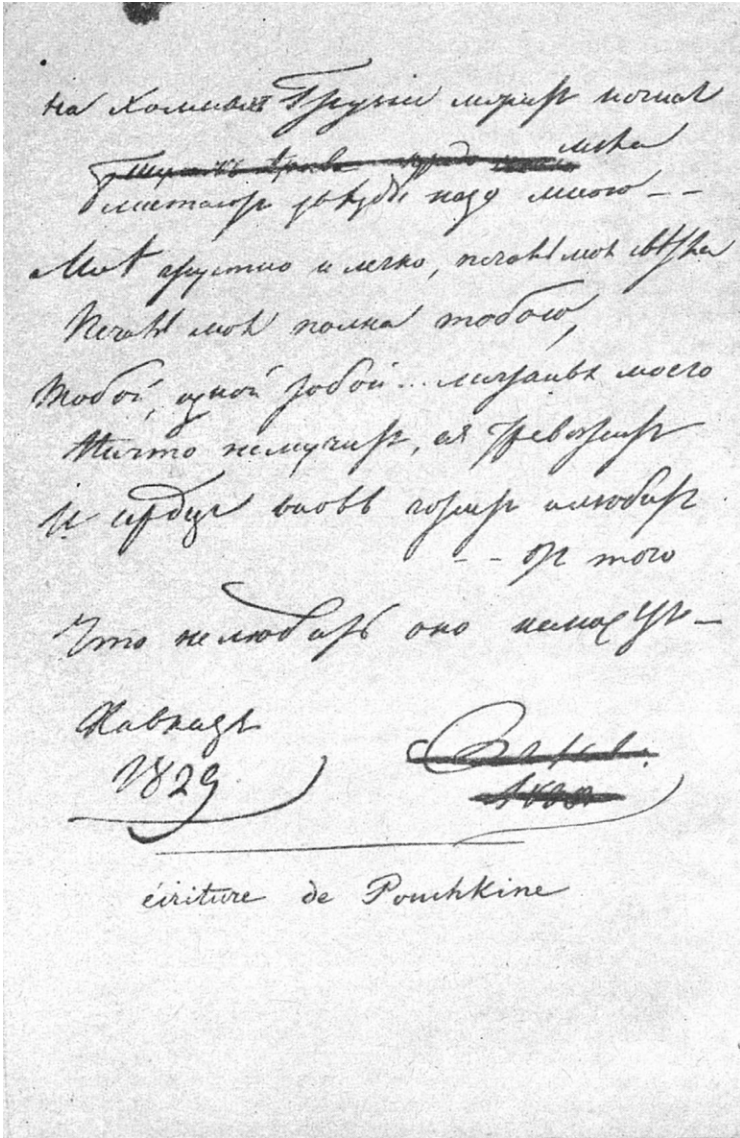 на холмахъ Грузіи лежитъ ночная
мгла
блистаютъ звѣзды надо мною - -
Мнѣ грустно и легко, печаль моя свѣтла
Печаль моя полна тобою,
Тобой, одной тобой... мечтанья моего
Ничто не мучитъ, не тревожитъ
И сердце вновь горитъ и любитъ
- - от того
Что не любить оно не можетъ —
Кавказъ
1829
écriture de Pouchkine